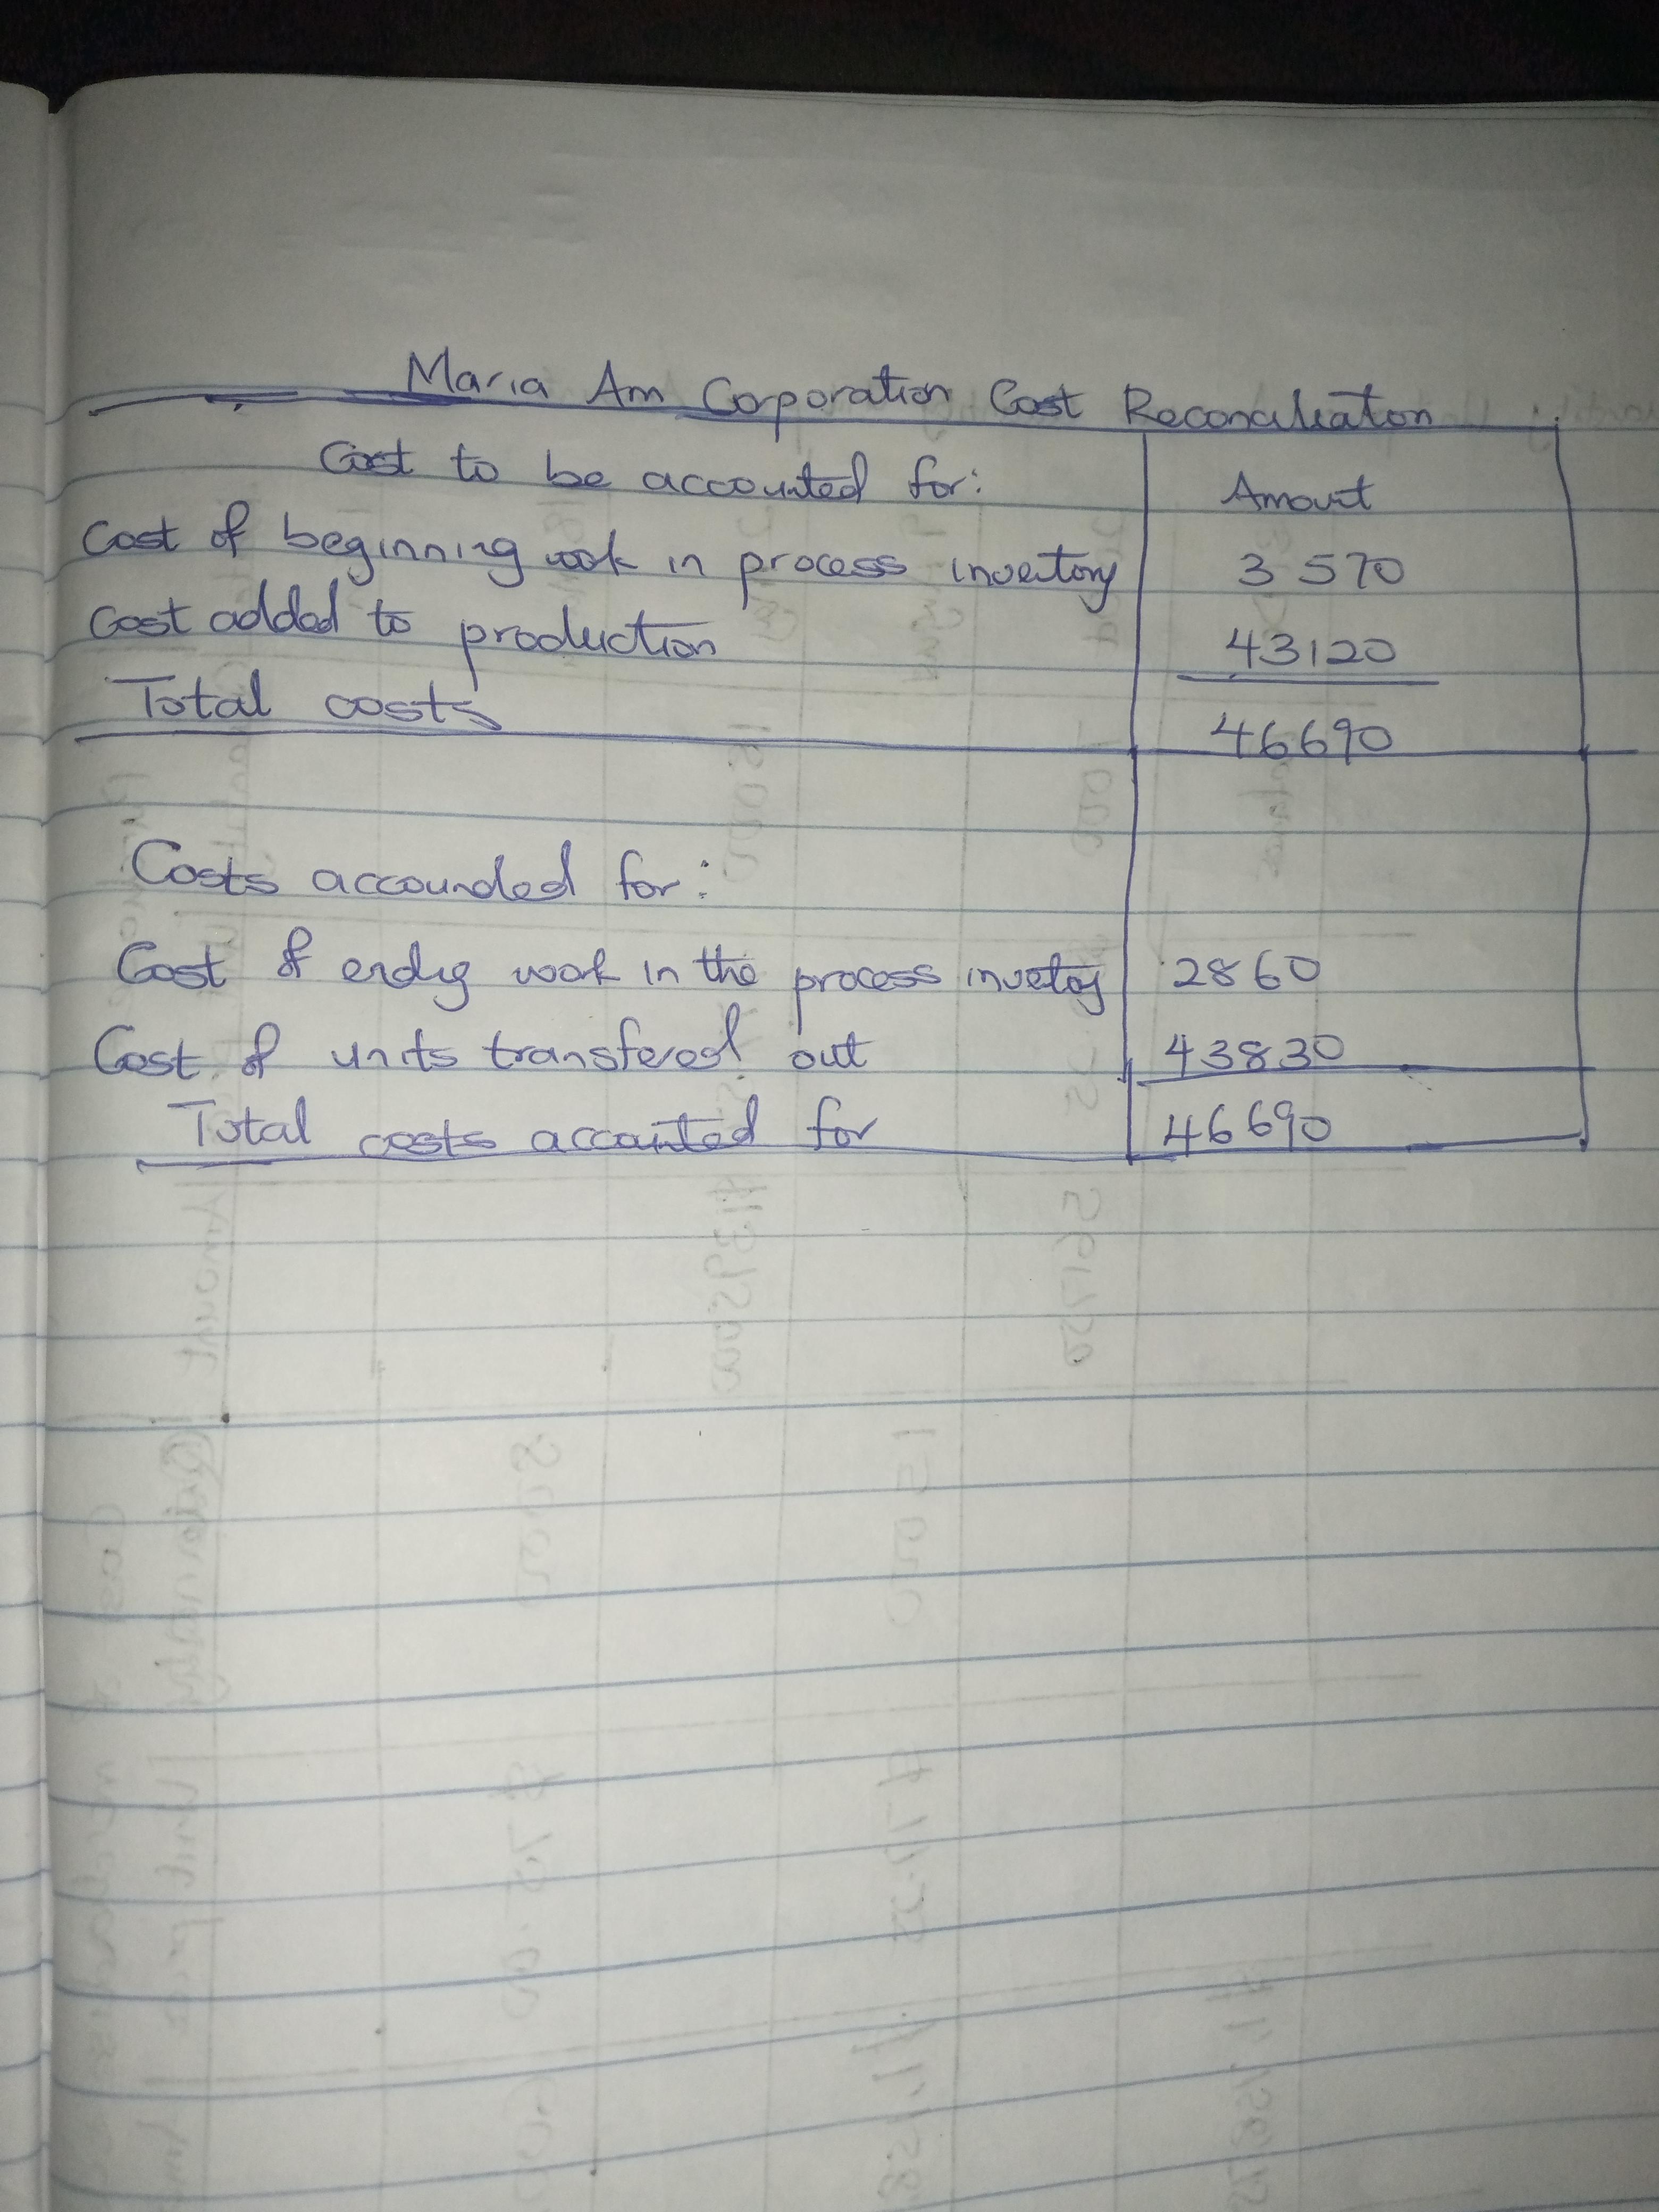 Maria Am Corporation Cost Reconciliation
Cost to be accounted for: Amount
Cost of beginning work in process inventory 3 570
Cost added to production 43120
Total costs 46690
Costs accounded for:
Cost of ending work in the process invetoy 2860
Cost of units transfered out 43830
Total costs accounted for 46690